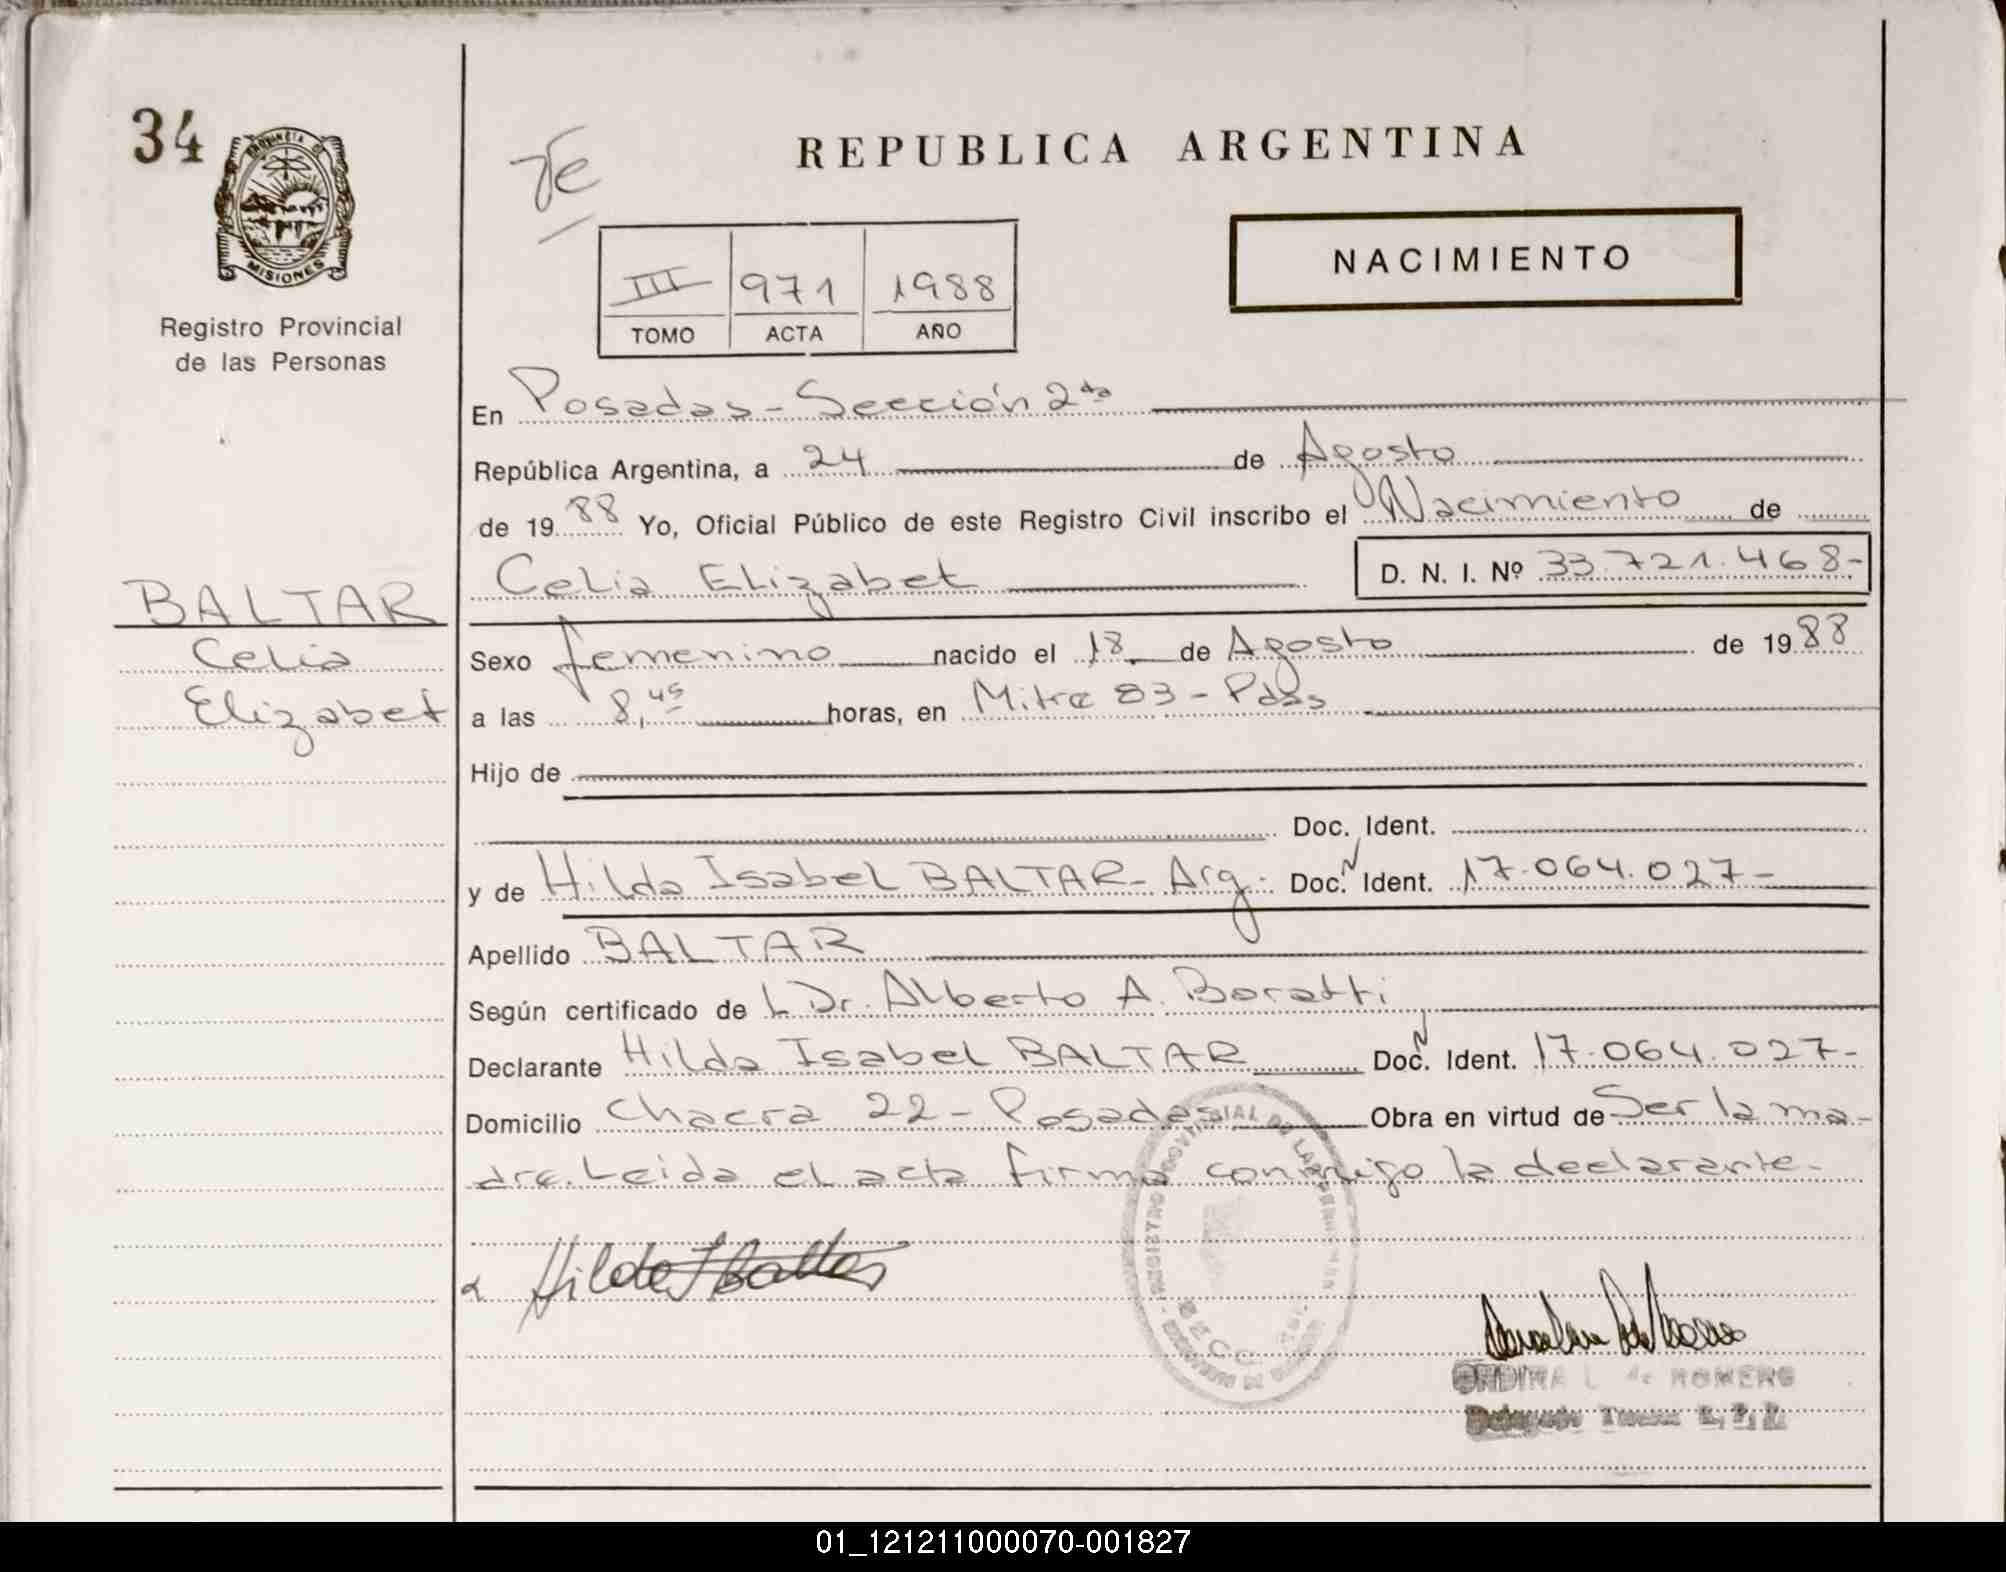 34
PROVINCIA DE
MISIONES
Registro Provincial
de las Personas
BALTAR
Celia
Elizabet
REPUBLICA ARGENTINA
NACIMIENTO
III 971 1988
TOMO ACTA AÑO
En Posadas - Sección 2da
República Argentina, a 24 de Agosto
de 1988 Yo, Oficial Público de este Registro Civil inscribo el Nacimiento de
Celia Elizabet D. N. I. Nº 33.721.468-
Sexo femenino nacido el 18 de Agosto de 1988
a las 8,45 horas, en Mitre 83 - Pdas
Hijo de
Doc. Ident.
y de Hilda Isabel BALTAR - Arg. Doc. N Ident. 17.064.027-
Apellido BALTAR
Según certificado de L Dr. Alberto A. Boratti
Declarante Hilda Isabel BALTAR Doc. N Ident. 17.064.027-
Domicilio Chacra 22 - Posadas Obra en virtud de Ser la ma-
dre. Leida el acta firma conmigo la declarante-
Hilda I Baltar
ONDINA L de ROMERO
01_121211000070-001827